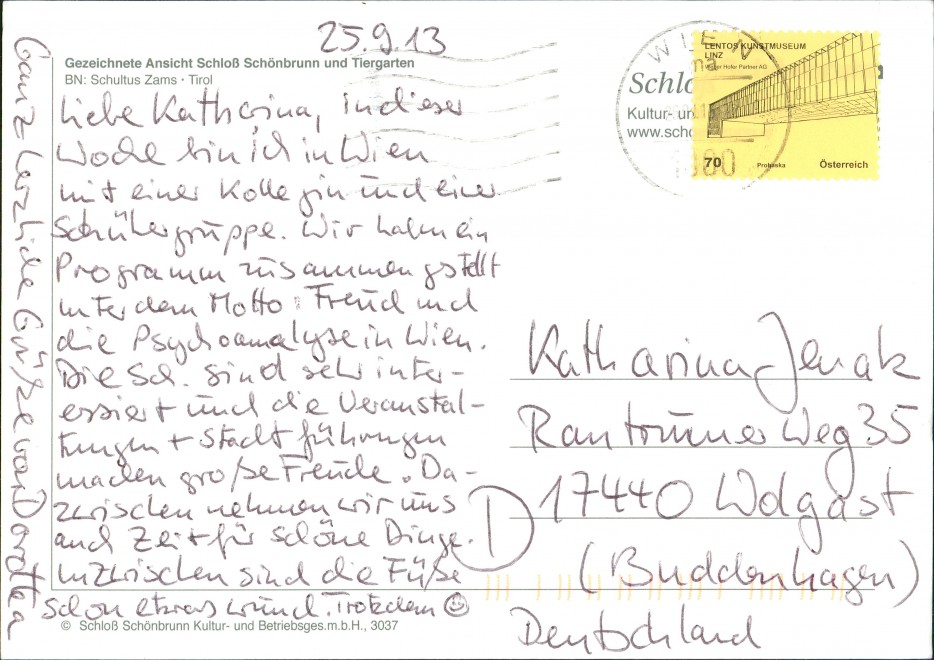 25.9.13
Gezeichnete Ansicht Schloß Schönbrunn und Tiergarten
BN: Schultus Zams · Tirol
Liebe Katharina, in dieser
Woche bin ich in Wien
mit einer Kollegin und einer
Schülergruppe. Wir haben ein
Programm zusammengestellt
unter dem Motto: Freud und
die Psychoanalyse in Wien.
Die Sch. sind sehr inter-
essiert und die Veranstal-
tungen + Stadtführungen
machen große Freude. Da-
zwischen nehmen wir uns
auch Zeit für schöne Dinge.
Inzwischen sind die Füße
schon etwas wund. Trotzdem ☺
Ganz herzliche Grüße von Dorothea
© Schloß Schönbrunn Kultur- und Betriebsges.m.b.H., 3037
WIEN
Schlo
Kultur- un
www.scho
LENTOS KUNSTMUSEUM
LINZ
Weber Hofer Partner AG
70
Prohaska
Österreich
Katharina Jenak
Weg 35
D 17440 Wolgast
(Buddenhagen)
Deutschland